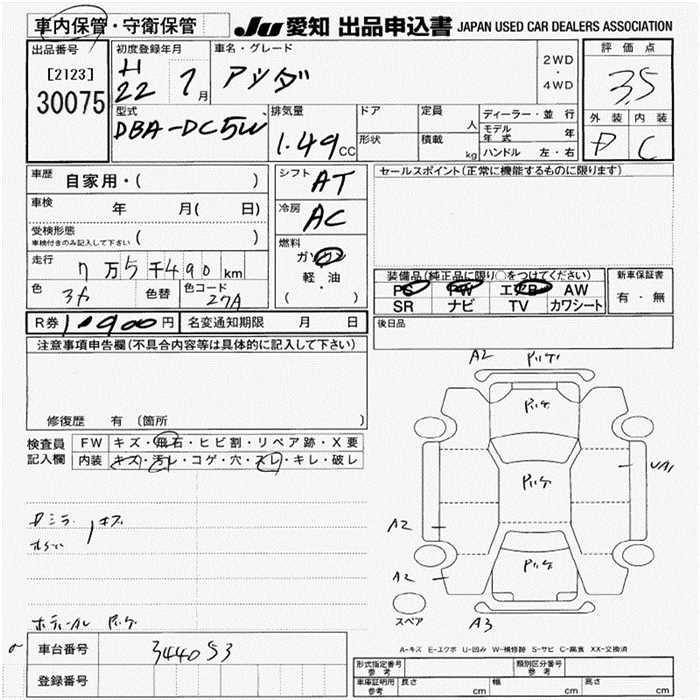 車内保管・守衛保管
JU 愛知 出品申込書 JAPAN USED CAR DEALERS ASSOCIATION
出品番号
[2123]
30075
初度登録年月
H
22
7月
車名・グレード
2WD
・
4WD
評価点
3.5
外装 内装
D C
型式
DBA-DC5W
排気量
1.49CC
ドア
形状
定員
人
積載
kg
ディーラー・並行
モデル年式 年
ハンドル 左・右
車歴
自家用・( )
車検
年 月( 日)
受検形態
車検付きのみ記入して下さい ( )
走行
7万5千490km
色
色替
色コード
27A
シフト AT
冷房 AC
燃料
ガソリン
軽・油
・
( )
セールスポイント(正常に機能するものに限ります)
装備品(純正品に限り○をつけてください)
PS PW エアB AW
SR ナビ TV カワシート
新車保証書
有・無
R券 円
名変通知期限 月 日
後日品
注意事項申告欄(不具合内容等は具体的に記入して下さい)
修復歴 有 (箇所 )
検査員
記入欄
FW キズ・飛石・ヒビ割・リペア跡・X要
内装 キズ・汚レ・コゲ・穴・スレ・キレ・破レ
A2
A2
A2
A3
スペア
A-キズ E-エクボ U-凹み W-補修跡 S-サビ C-腐食 XX-交換済
車台番号
344053
登録番号
形式指定番号
参考
類別区分番号
参考
車庫証明用
参考
長さ cm
幅 cm
高さ cm